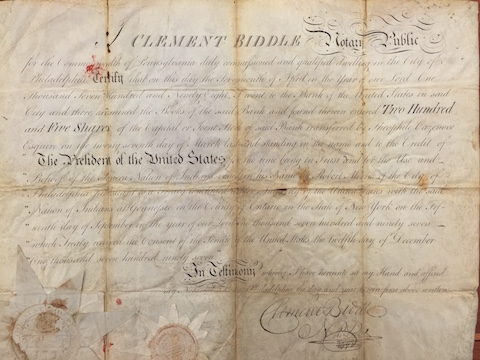 I CLEMENT BIDDLE Notary Public
for the Commonwealth of Pennsylvania duly commissioned and qualified dwelling in the City of
Philadelphia Certify that on this day the of April in the Year of our Lord One
Thousand Seven Hundred and Ninety Eight, I went to the Bank of the United States in said
City and there examined the Books of the said Bank and found thereon entered Two Hundred
and Five Shares of the Capital or Joint Stock of said Bank transferred by Theophile Cazenove
Esquire on the twenty seven day of March last and standing in the name and to the Credit of
The President of the United States for the time being in Trust and for the Use and
"Behoof of the Seneca Nation of Indians his Name Robert Morris of the City of
"Philadelphia
"Nation of Indians at in the County of Ontario in the State of New York on the fif-
"teenth day of September in the year of our Lord One thousand seven hundred and ninety seven
"which Treaty received the Consent of the Senate of the United States the twelfth day of December
"One thousand seven hundred ninety seven
In Testimony whereof I have hereunto set my Hand and affixed
my Notarial the day and year first above written
Clement Biddle